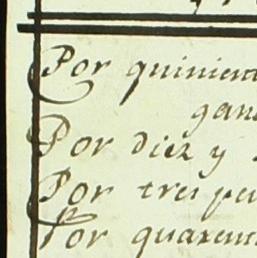 Por quinient
gana
Por diez y
Por tres pe
Por quarent